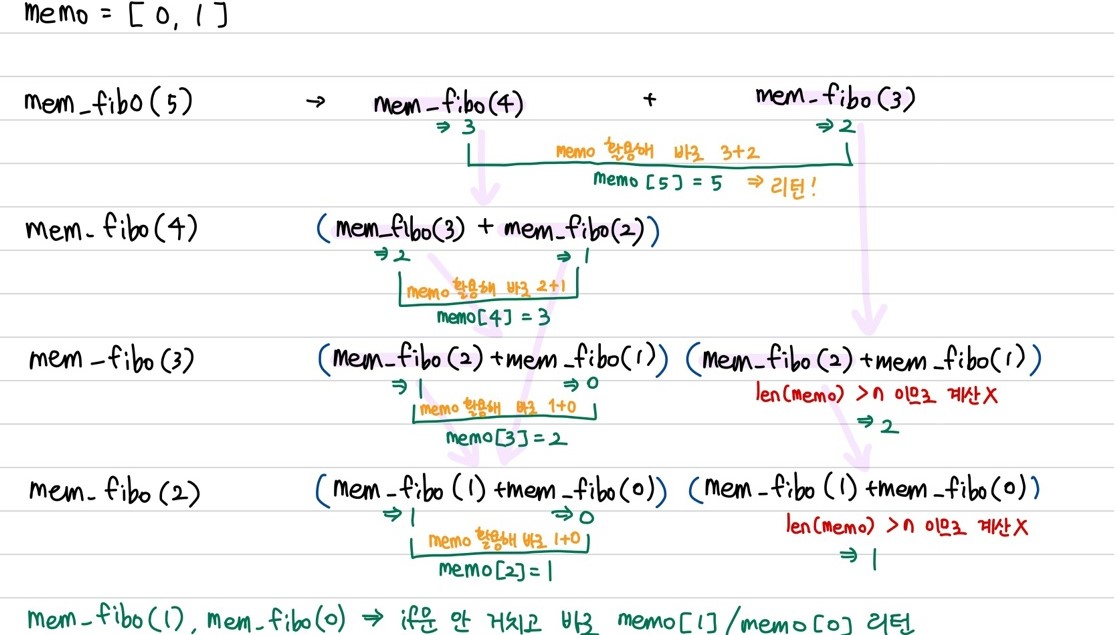 memo = [0, 1]
mem_fibo(5) → mem_fibo(4) + mem_fibo(3)
⇒ 3 ⇒ 2
memo 활용해 바로 3+2
memo[5] = 5 ⇒ 리턴!
mem_fibo(4) (mem_fibo(3) + mem_fibo(2))
⇒ 2 ⇒ 1
memo 활용해 바로 2+1
memo[4] = 3
mem_fibo(3) (mem_fibo(2) + mem_fibo(1)) (mem_fibo(2) + mem_fibo(1))
⇒ 1 ⇒ 0 len(memo) > n 이므로 계산X
memo 활용해 바로 1+0 ⇒ 2
memo[3] = 2
mem_fibo(2) (mem_fibo(1) + mem_fibo(0)) (mem_fibo(1) + mem_fibo(0))
⇒ 1 ⇒ 0 len(memo) > n 이므로 계산X
memo 활용해 바로 1+0 ⇒ 1
memo[2] = 1
mem_fibo(1), mem_fibo(0) ⇒ if문 안 거치고 바로 memo[1]/memo[0] 리턴